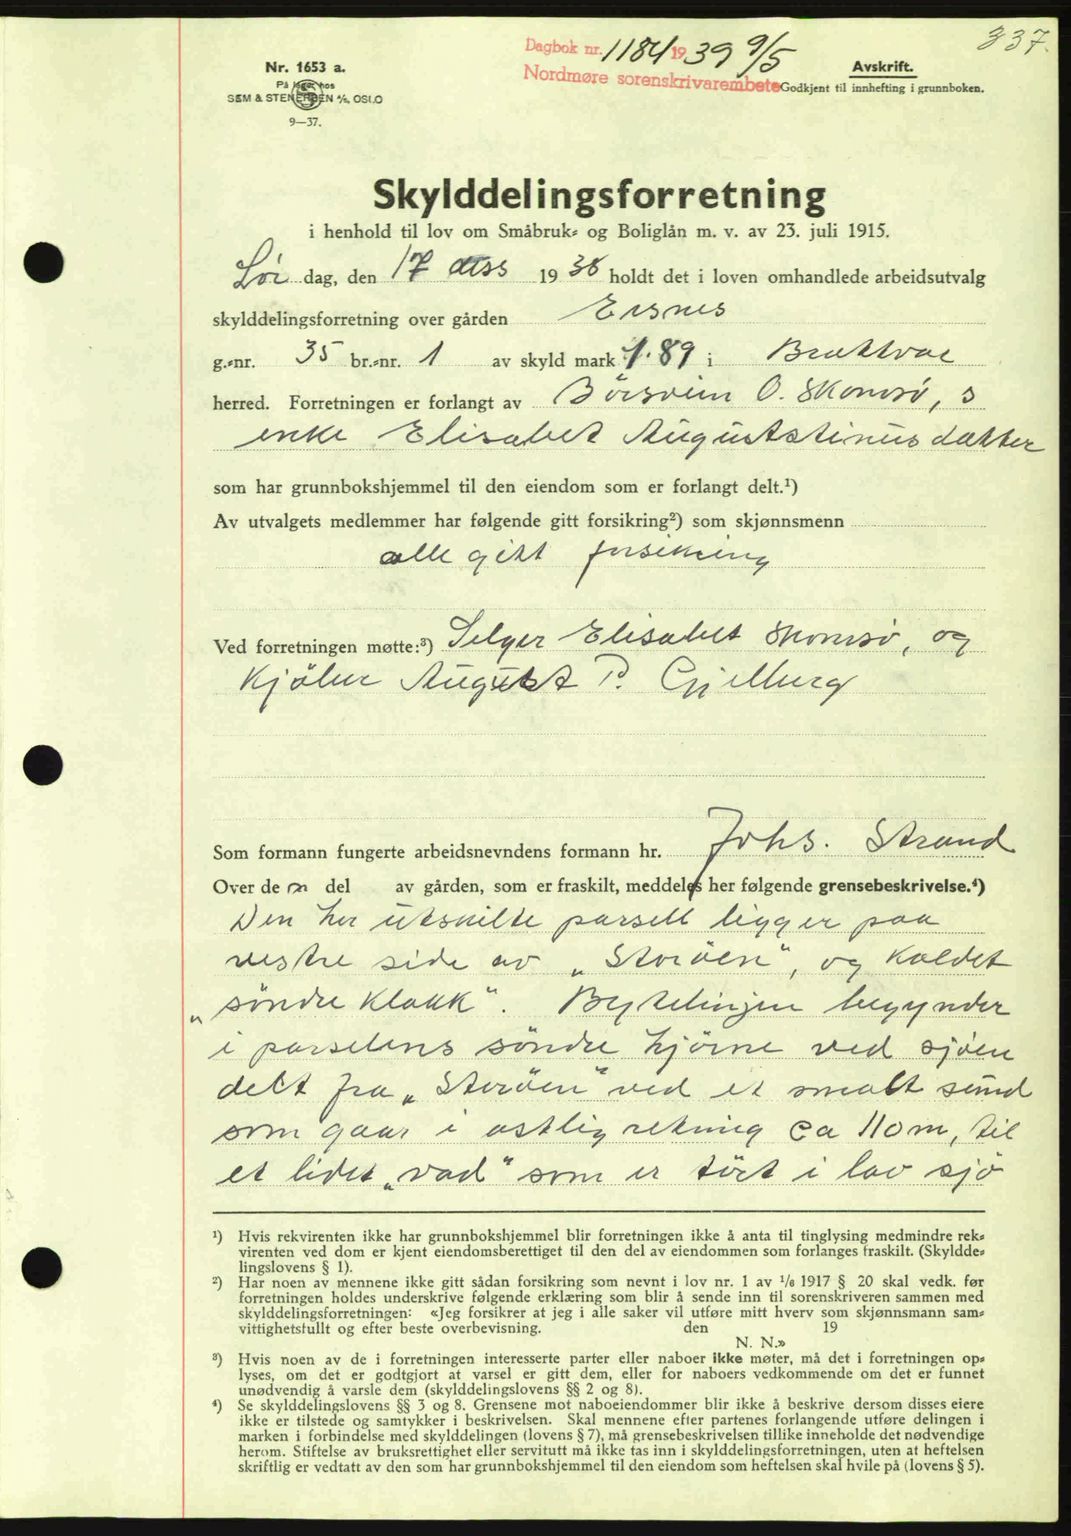 337.
Dagbok nr. 1184 1939 9/5
Nordmøre sorenskrivarembete
Nr. 1653 a.
På lager hos
SEM & STENERSEN A/S, OSLO
9—37.
Avskrift.
Godkjent til innhefting i grunnboken.
Skylddelingsforretning
i henhold til lov om Småbruk- og Boliglån m. v. av 23. juli 1915.
Lør dag, den 17 dess 1938 holdt det i loven omhandlede arbeidsutvalg
skylddelingsforretning over gården Ersnes
g.-nr. 35 br.-nr. 1 av skyld mark 1.89 i Brattvær
herred. Forretningen er forlangt av O. Skomsø, s
enke Elisabet Augustinusdatter
som har grunnbokshjemmel til den eiendom som er forlangt delt.¹)
Av utvalgets medlemmer har følgende gitt forsikring²) som skjønnsmenn
alle gitt forsikring
Ved forretningen møtte:³) Selger Elisabet Skomsø, og
Kjöber August P. Gjelberg
Som formann fungerte arbeidsnevndens formann hr. Johs. Strand
Over de n del av gården, som er fraskilt, meddeles her følgende grensebeskrivelse.⁴)
Den her utskilte parsell ligger paa
vestre side av „Storöen", og kaldet
„söndre Klakk". Bytelinjen begynder
i parselens söndre hjörne ved sjöen
delt fra „Storöen" ved et smalt sund
som gaar i ostlig retning ca 110 m, til
et lidet „vad" som er tört i lav sjö
¹) Hvis rekvirenten ikke har grunnbokshjemmel blir forretningen ikke å anta til tinglysing medmindre rek-
virenten ved dom er kjent eiendomsberettiget til den del av eiendommen som forlanges fraskilt. (Skyldde-
lingslovens § 1).
²) Har noen av mennene ikke gitt sådan forsikring som nevnt i lov nr. 1 av 1/6 1917 § 20 skal vedk. før
forretningen holdes underskrive følgende erklæring som blir å sende inn til sorenskriveren sammen med
skylddelingsforretningen: «Jeg forsikrer at jeg i alle saker vil utføre mitt hverv som skjønnsmann sam-
vittighetsfullt og efter beste overbevisning. den 19
N. N.»
³) Hvis noen av de i forretningen interesserte parter eller naboer ikke møter, må det i forretningen op-
lyses, om det er godtgjort at varsel er gitt dem, eller for naboers vedkommende om det er funnet
unødvendig å varsle dem (skylddelingslovens §§ 2 og 8).
⁴) Se skylddelingslovens §§ 3 og 8. Grensene mot naboeiendommer blir ikke å beskrive dersom disses eiere
ikke er tilstede og samtykker i beskrivelsen. Skal mennene efter partenes forlangende utføre delingen i
marken i forbindelse med skylddelingen (lovens § 7), må grensebeskrivelsen tillike inneholde det nødvendige
herom. Stiftelse av bruksrettighet eller servitutt må ikke tas inn i skylddelingsforretningen, uten at heftelsen
skriftlig er vedtatt av den som har grunnbokshjemmel til den eiendom som heftelsen skal hvile på (lovens § 5).